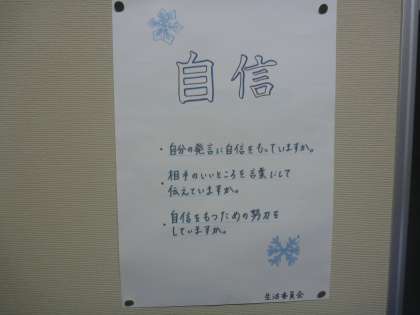 自信
・自分の発言に自信をもっていますか。
・相手のいいところを言葉にして
伝えていますか。
・自信をもつための努力を
していますか。
生活委員会